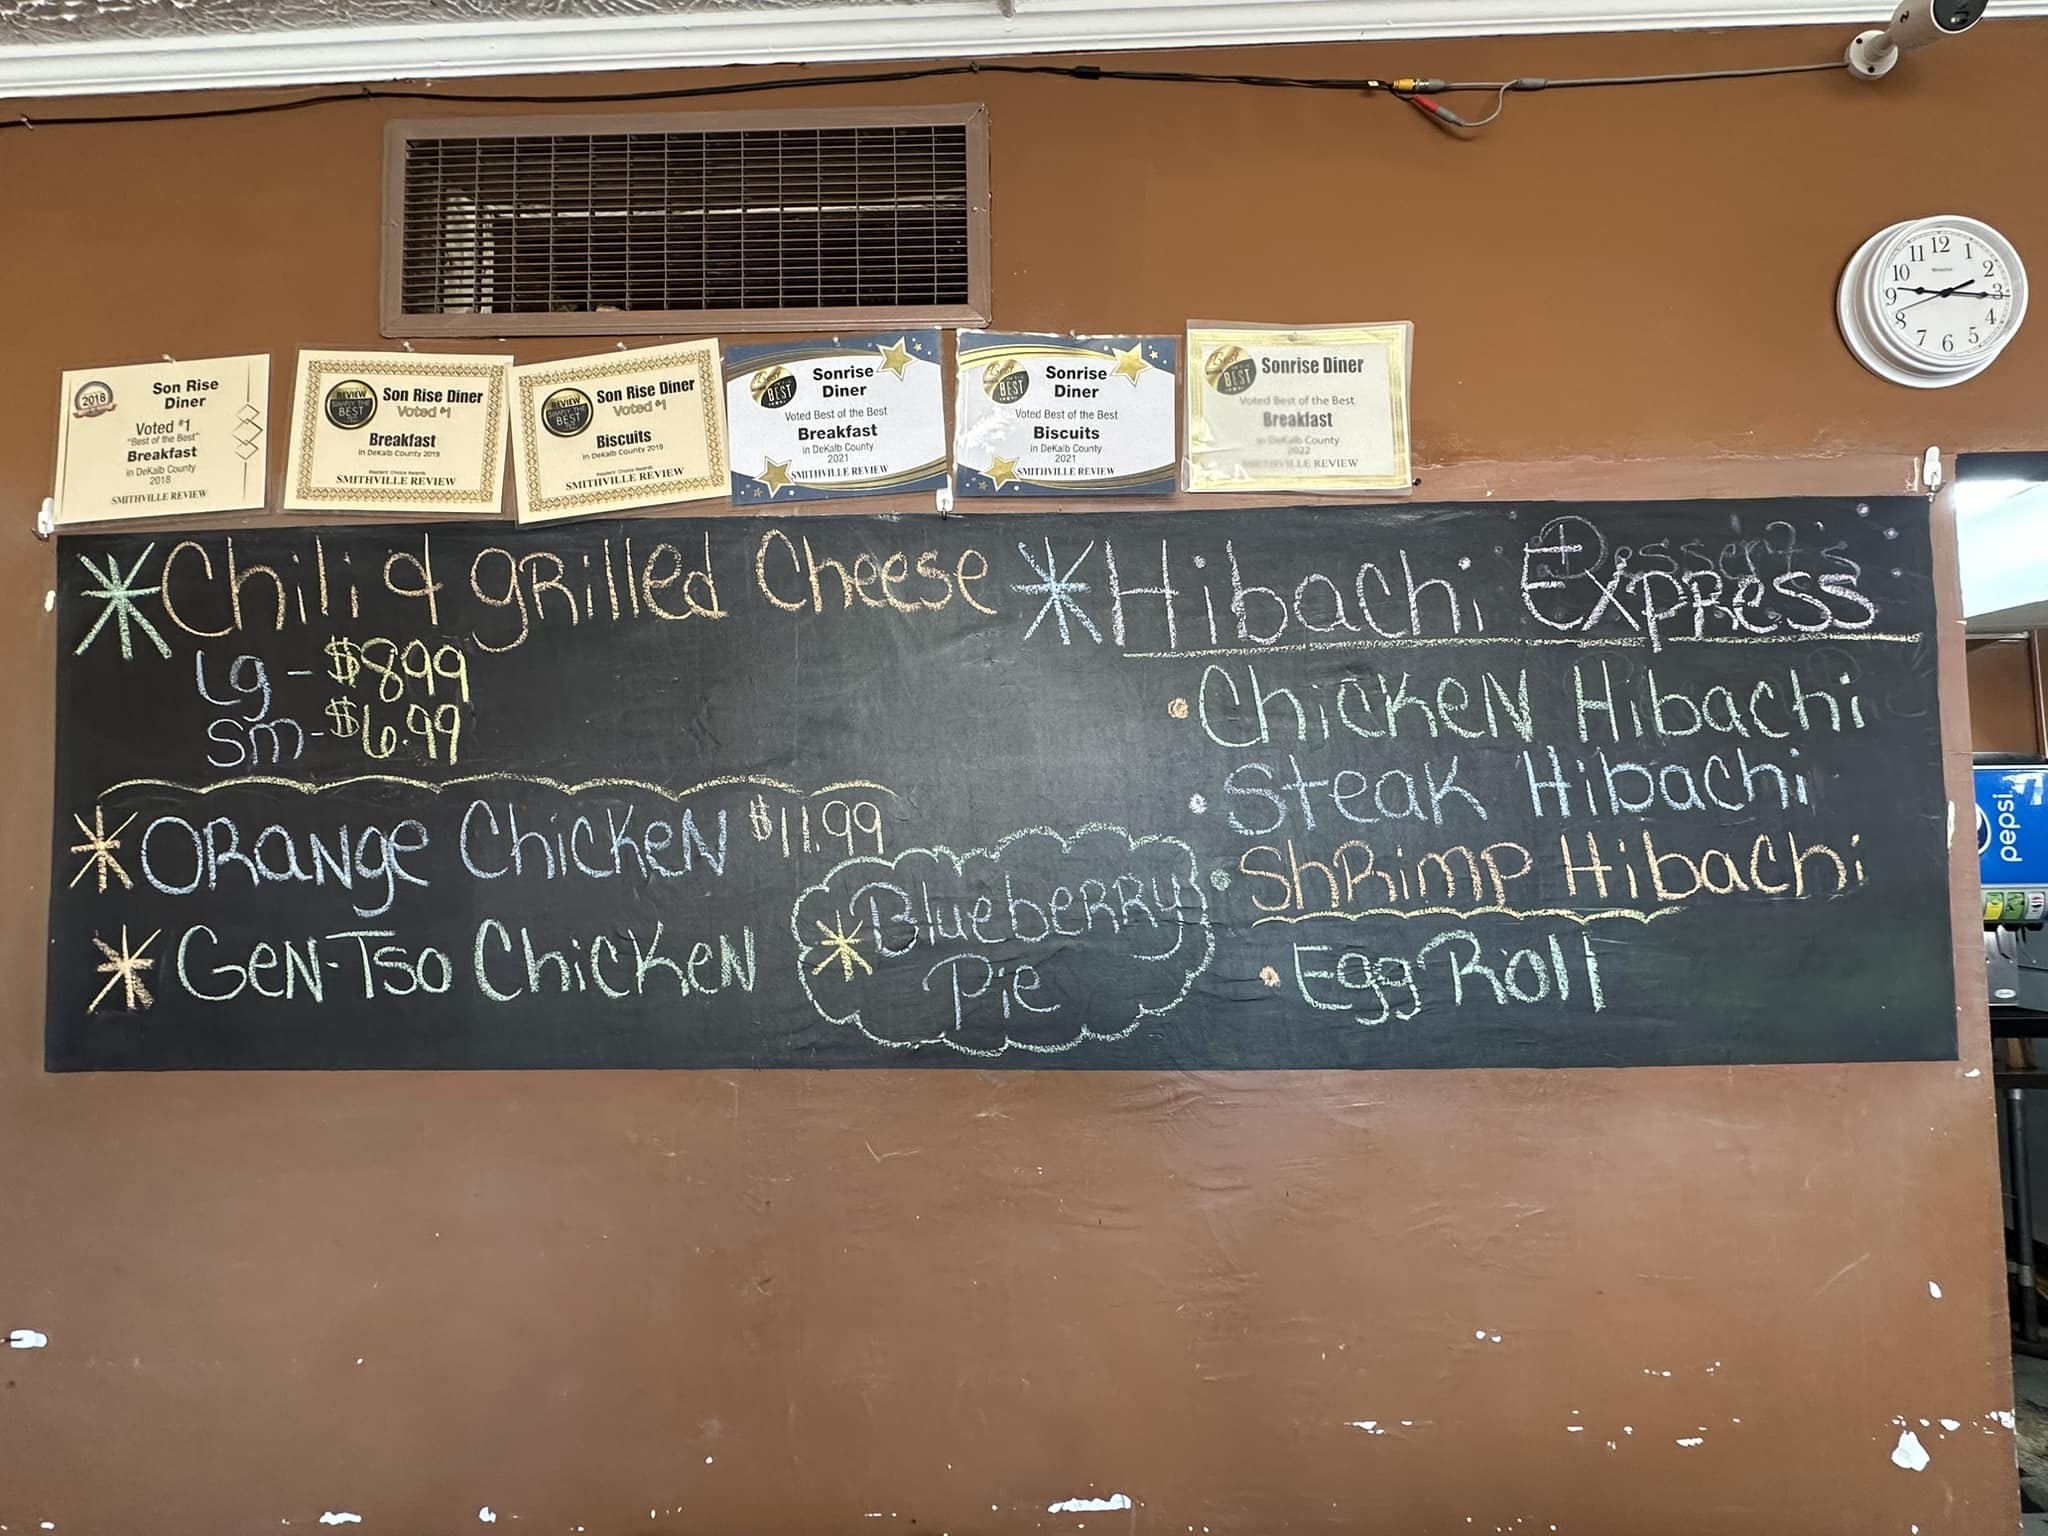 2018
Son Rise
Diner
Voted #1
"Best of the Best"
Breakfast
in DeKalb County
2018
SMITHVILLE REVIEW
REVIEW
SIMPLY THE
BEST
Son Rise Diner
Voted #1
Breakfast
in DeKalb County 2019
Readers' Choice Awards
SMITHVILLE REVIEW
REVIEW
SIMPLY THE
BEST
Son Rise Diner
Voted #1
Biscuits
in DeKalb County 2019
Readers' Choice Awards
SMITHVILLE REVIEW
Best
BEST
Sonrise
Diner
Voted Best of the Best
Breakfast
in DeKalb County
2021
SMITHVILLE REVIEW
Best
BEST
Sonrise
Diner
Voted Best of the Best
Biscuits
in DeKalb County
2021
SMITHVILLE REVIEW
Best
BEST
Sonrise Diner
Voted Best of the Best
Breakfast
in DeKalb County
2022
SMITHVILLE REVIEW
12 1 2 3 4 5 6 7 8 9 10 11
Chili & grilled Cheese
Lg - $8.99
Sm - $6.99
Orange Chicken $11.99
Gen-Tso Chicken
Blueberry
Pie
Dessert's
Hibachi Express
Chicken Hibachi
Steak Hibachi
Shrimp Hibachi
Egg Roll
pepsi